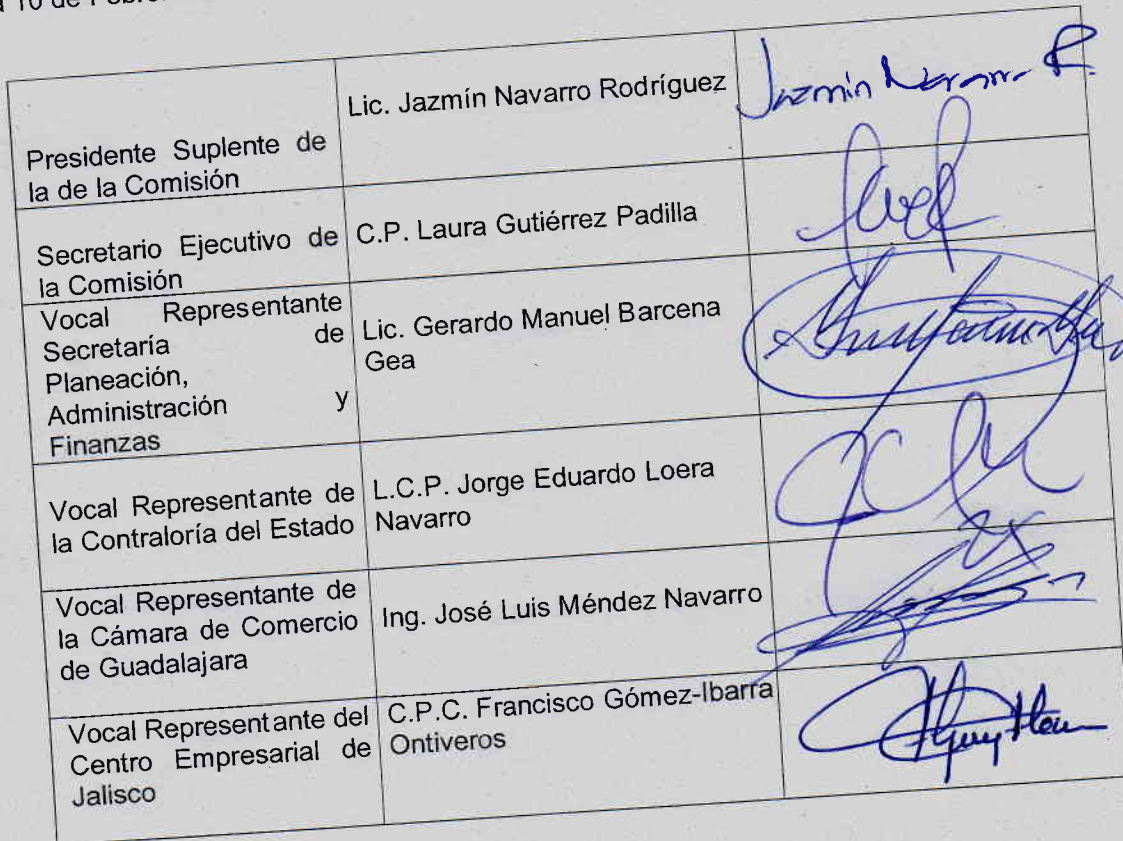 10 de
Presidente Suplente de
la de la Comisión
Lic. Jazmín Navarro Rodríguez
Jazmín Navarro R.
Secretario Ejecutivo de
la Comisión
C.P. Laura Gutiérrez Padilla
Vocal Representante
Secretaría de
Planeación,
Administración y
Finanzas
Lic. Gerardo Manuel Barcena
Gea
Vocal Representante de
la Contraloría del Estado
L.C.P. Jorge Eduardo Loera
Navarro
Vocal Representante de
la Cámara de Comercio
de Guadalajara
Ing. José Luis Méndez Navarro
Vocal Representante del
Centro Empresarial de
Jalisco
C.P.C. Francisco Gómez-Ibarra
Ontiveros